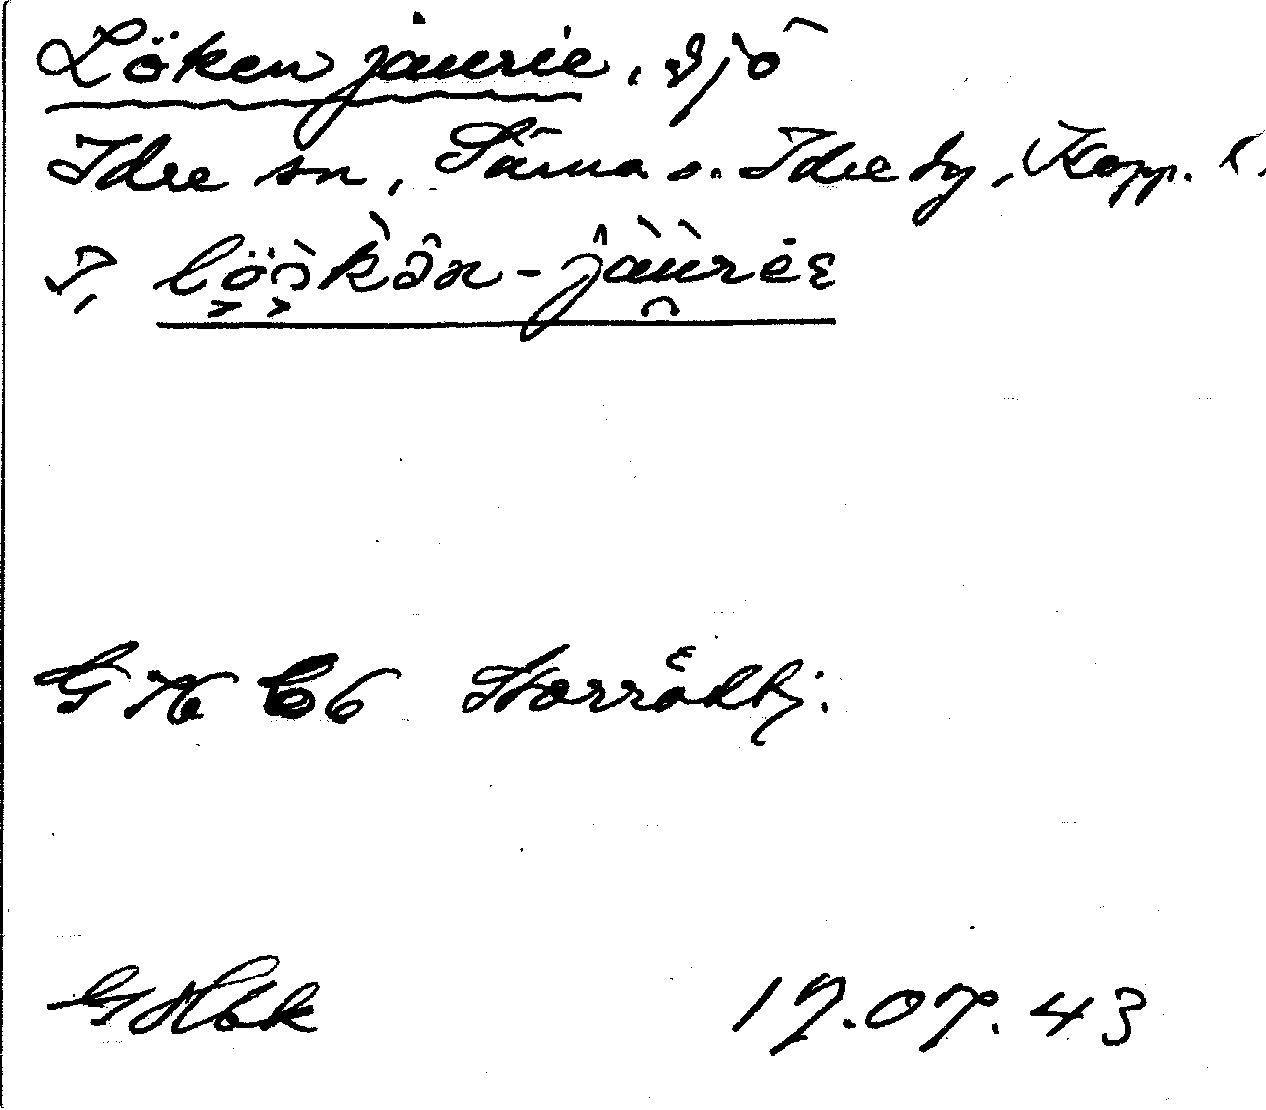 Lökenjaurie, sjö
Idre sn, Särna o. Idre by, Kopp. l.
löökən-jaurie
GK C6 Storrödtj.
17.07.43